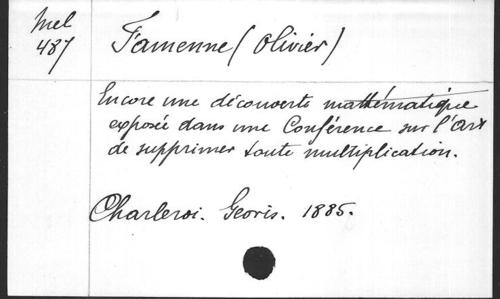 Mel
487
Famenne (Olivier)
Encore une découverte mathématique
exposée dans une Conférence sur l'Art
de supprimer toute multiplication.
Charleroi. Georis. 1885.